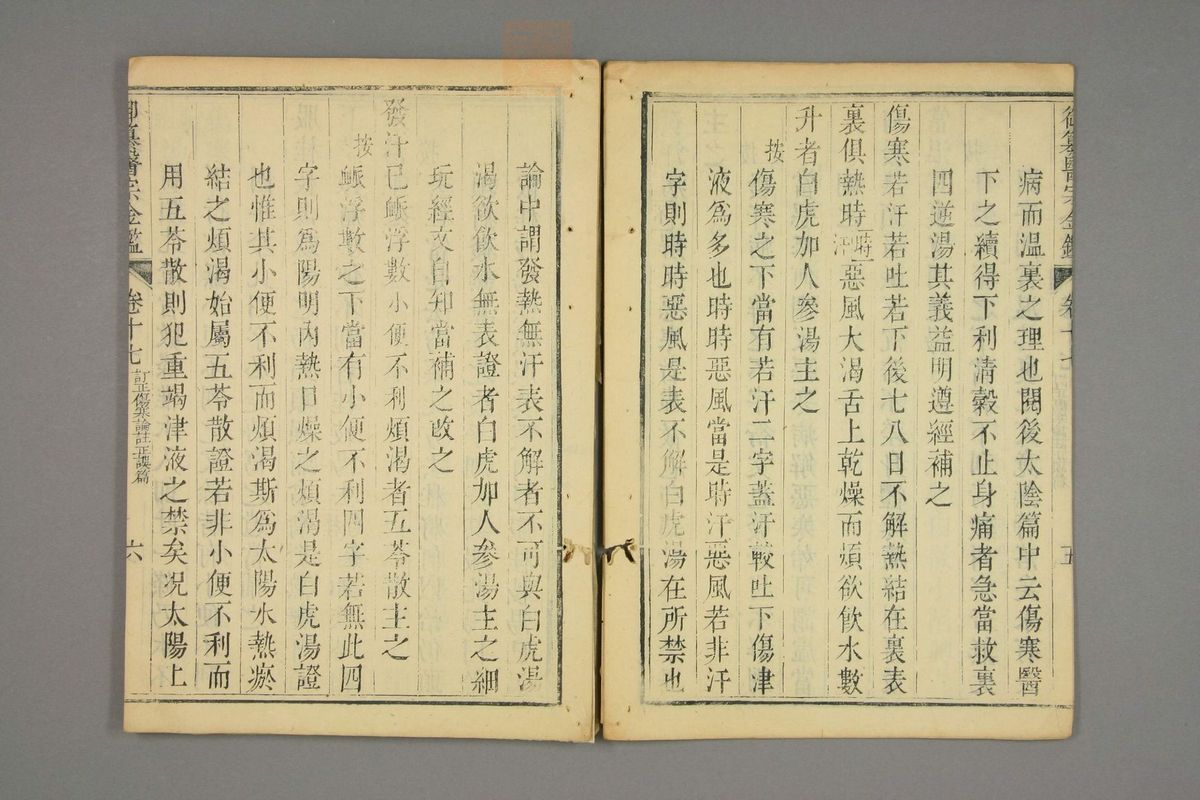 病而溫裏之理也閱後太陰篇中云傷寒醫
下之續得下利清穀不止身痛者急當救裏
四逆湯其義益明遵經補之
傷寒若汗若吐若下後七八日不解熱結在裏表
裏俱熱時時汗惡風大渴舌上乾燥而煩欲飲水數
升者白虎加人參湯主之
按
傷寒之下當有若汗二字蓋汗較吐下傷津
液爲多也時時惡風當是時汗惡風若非汗
字則時時惡風是表不解白虎湯在所禁也
論中謂發熱無汗表不解者不可與白虎湯
渴欲飲水無表證者白虎加人參湯主之細
玩經文自知當補之改之
發汗已衇浮數小便不利煩渴者五苓散主之
按
衇浮數之下當有小便不利四字若無此四
字則爲陽明內熱口燥之煩渴是白虎湯證
也惟其小便不利而煩渴斯爲太陽水熱瘀
結之煩渴始屬五苓散證若非小便不利而
用五苓散則犯重竭津液之禁矣況太陽上
醫宗金鑑 卷十七 訂正傷寒論註正誤篇 六